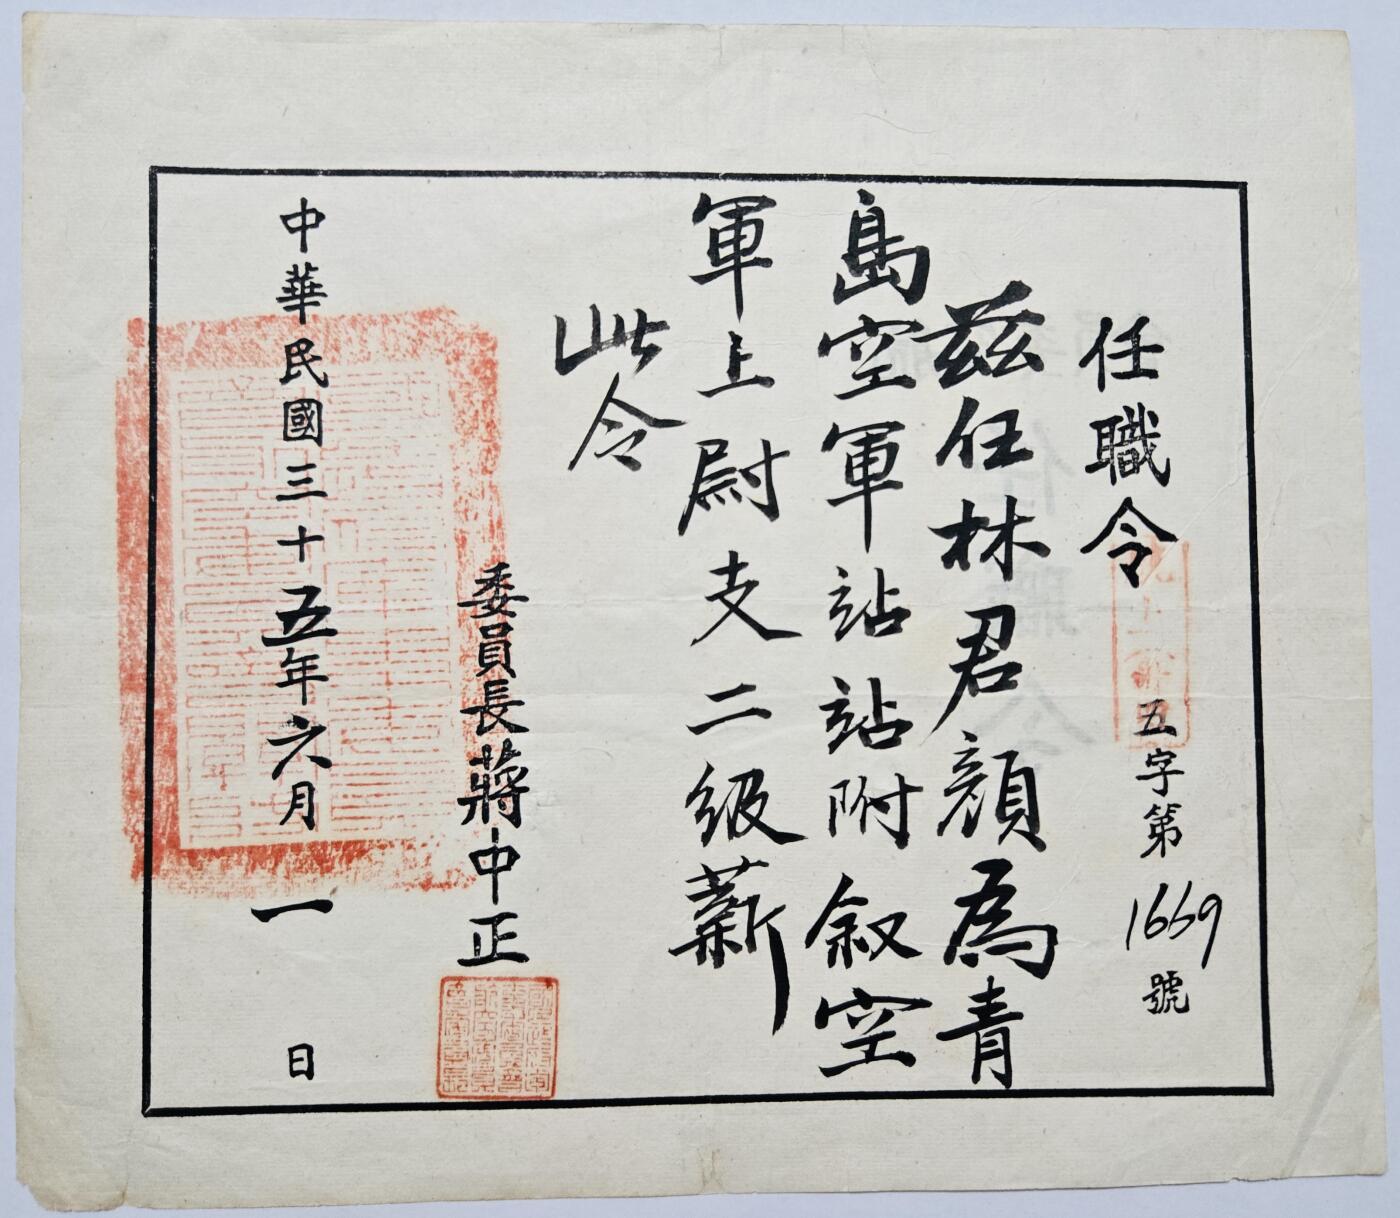 任職令
五字第1669號
茲任林君顏為青
島空軍站站附敘空
軍上尉支二級薪
此令
委員長蔣中正
中華民國三十五年六月一日